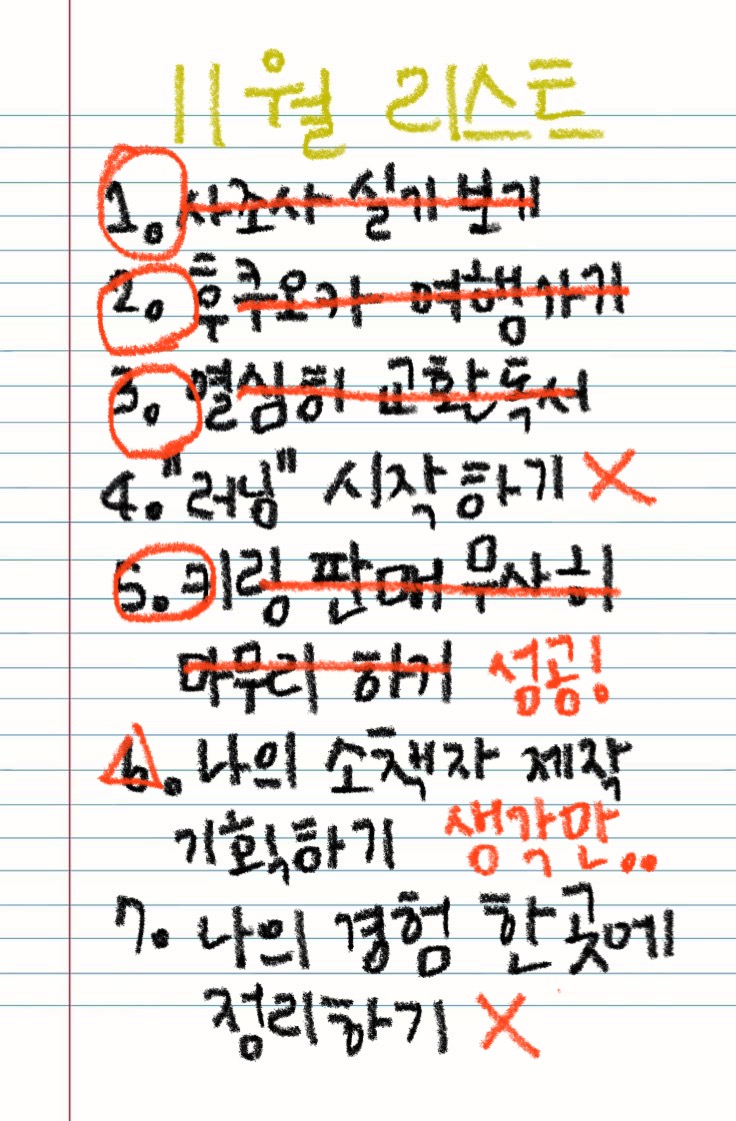 11월 리스트
1. 사조사 실기 보기
2. 후쿠오카 여행가기
3. 열심히 교환독서
4. "러닝" 시작하기 X
5. 키링 판매 무사히
마무리 하기 성공!
6. 나의 소책자 제작
기획하기 생각만..
7. 나의 경험 한곳에
정리하기 X